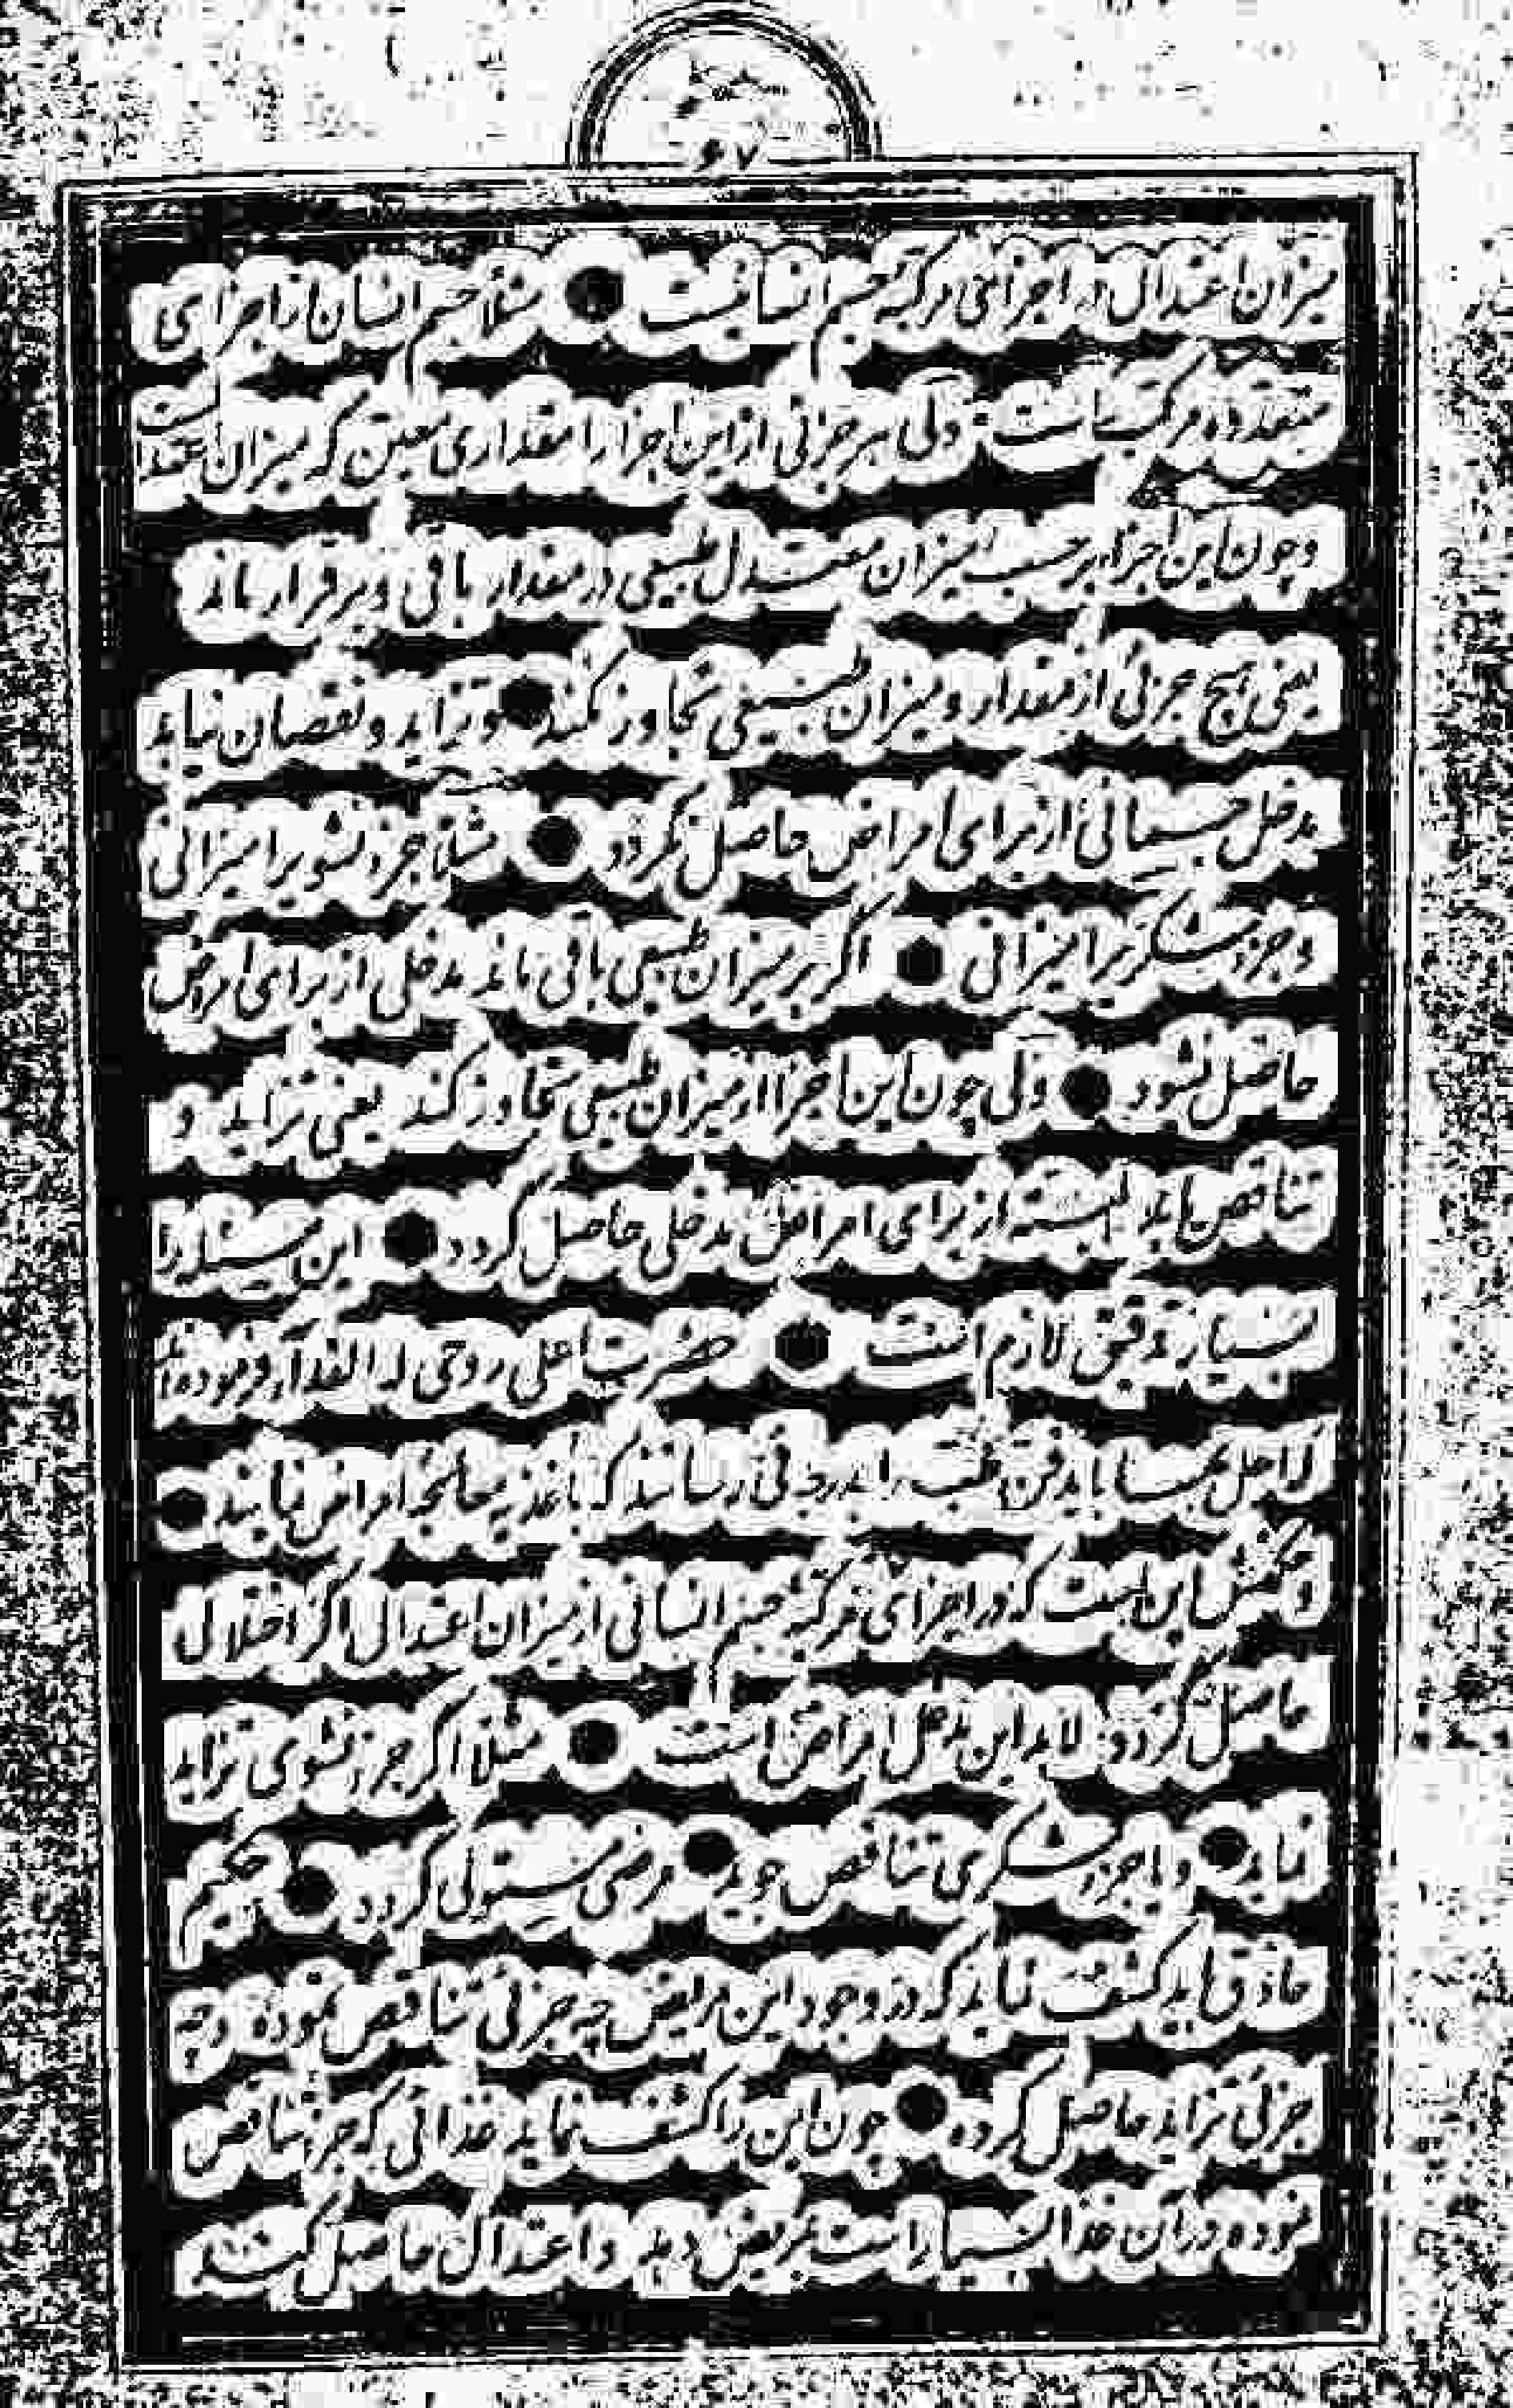 میزان اعتدال در اجزای مرکبه جسم انسانیست مثلا جسم انسان از اجزای
متعدده مرکبست ولی هر جزئی از این اجزا را مقداری معین که میزان اعتدالست
و چون این اجزا بر حسب میزان معتدل طبیعی در مقدار باقی و برقرار ماند
یعنی هیچ جزئی از مقدار و میزان طبیعی تجاوز نکند و تزاید و تناقص ننماید
مدخل جسمانی از برای امراض حاصل نگردد مثلا جزء نشویرا میزانی
و جزء شکریرا میزانی اگر بر میزان طبیعی باقی ماند مدخلی از برای مرض
حاصل نشود ولی چون این اجزا از میزان طبیعی تجاوز کند یعنی تزاید و
تناقص یابد البته از برای امراض مدخلی حاصل گردد این مسئله را
بسیار تدقیق لازم است حضرت اعلی روحی له الفدا فرموده‌اند
که اهل بهاء باید فن طب را بدرجه‌ئی رسانند که باغذیه معالجه امراض نمایند
و حکمتش این است که در اجزای مرکبه جسم انسانی از میزان اعتدال اگر اختلال
حاصل گردد لابد این مدخل امراض است مثلا اگر جزء نشوی تزاید
نماید و یا جزء شکری تناقص جوید مرضی مستولی گردد حکیم
حاذق باید کشف نماید که در وجود این مریض چه جزئی تناقص نموده و چه
جزئی تزاید حاصل کرده چون این را کشف نماید غذائی که جزء تناقص
نموده در آن غذا بسیار است بمریض دهد و اعتدال حاصل کند